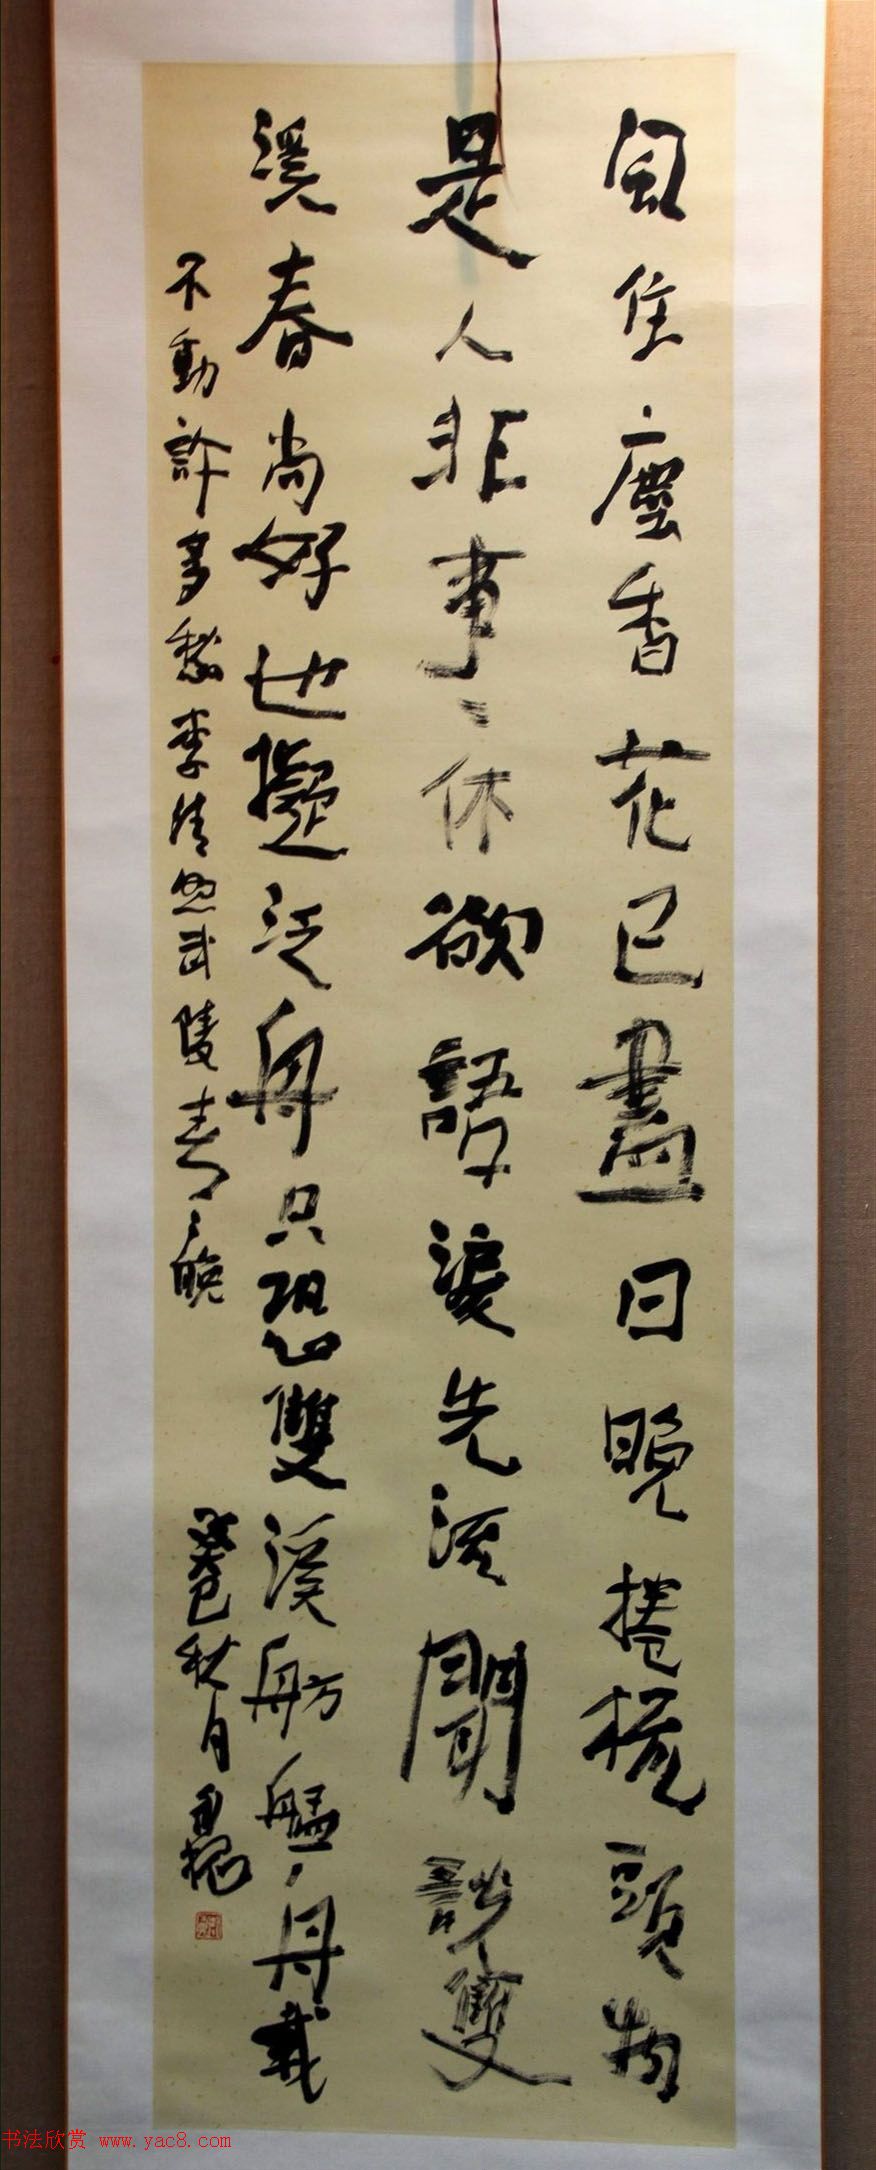 風住塵香花已盡日晚捲梳頭物
是人非事〻休欲語淚先流聞說雙
溪春尚好也擬泛舟只恐雙溪舫艋舟載
不動許多愁李清照武陵春〻晚
癸巳秋月
书法欣赏 www.yac8.com